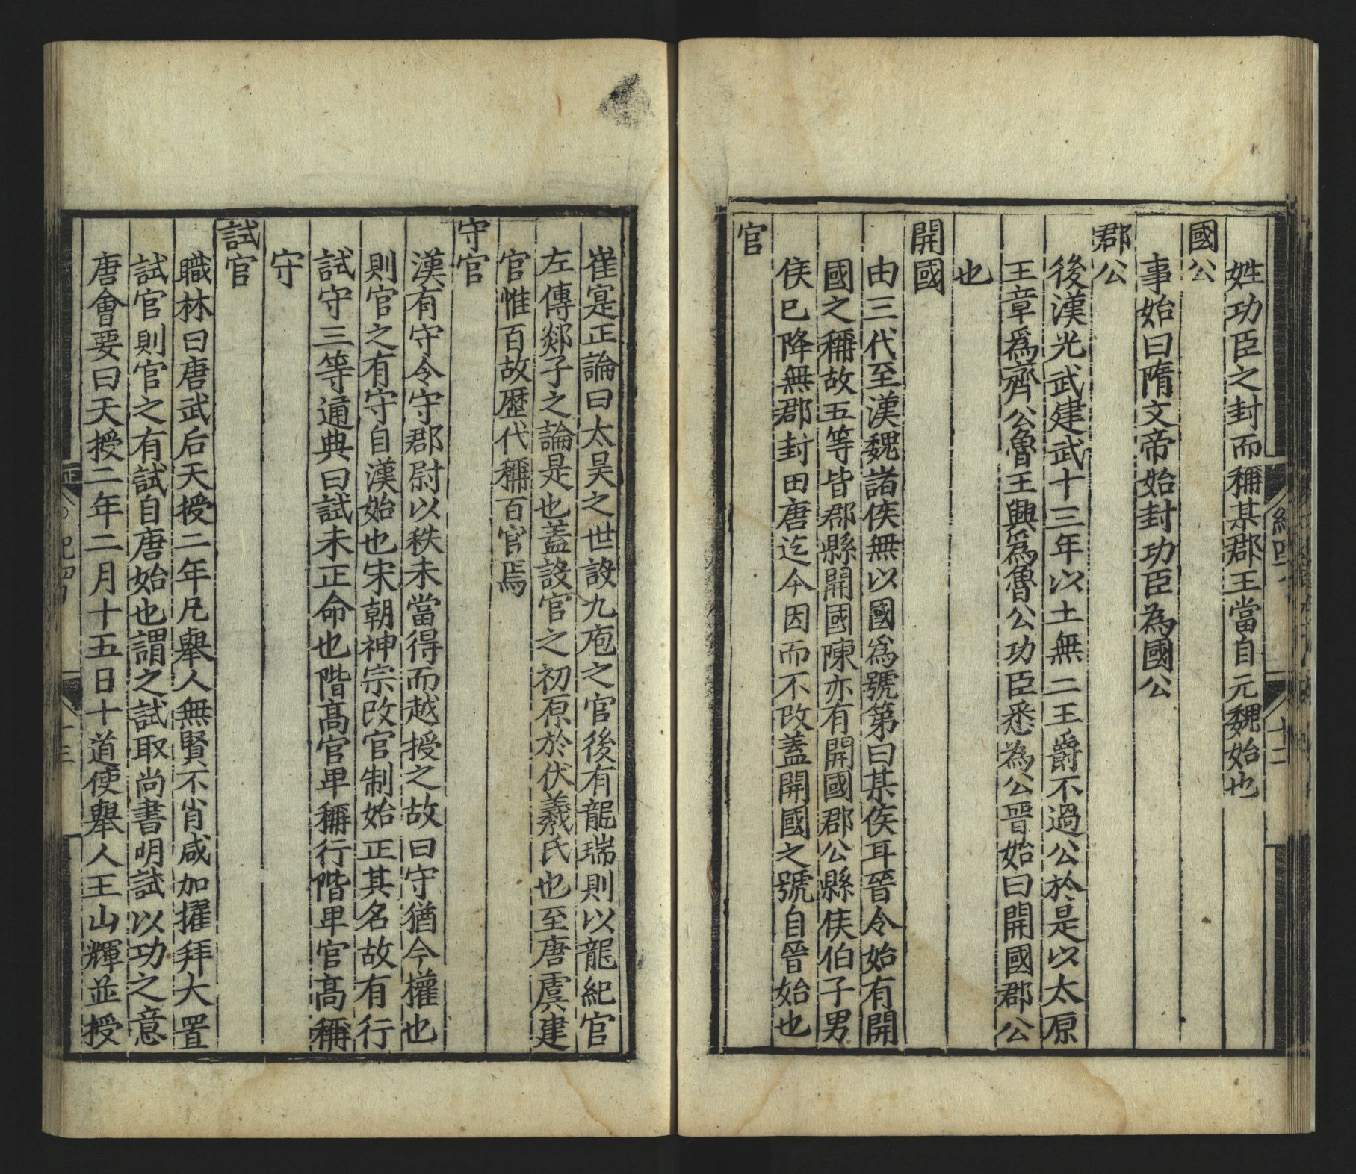 姓功臣之封而稱某郡王當自元魏始也
國公
事始曰隋文帝始封功臣為國公
郡公
後漢光武建武十三年以土無二王爵不過公於是以太原
王章爲齊公魯王興爲魯公功臣悉為公晉始曰開國郡公
也
開國
由三代至漢魏諸侯無以國爲號第曰某侯耳晉令始有開
國之稱故五等皆郡縣開國陳亦有開國郡公縣侯伯子男
侯已降無郡封田唐迄今因而不改蓋開國之號自晉始也
官
崔寔正論曰太昊之世設九庖之官後有龍瑞則以龍紀官
左傳郯子之論是也蓋設官之初原於伏羲氏也至唐虞建
官惟百故歷代稱百官焉
守官
漢有守令守郡尉以秩未當得而越授之故曰守猶今權也
則官之有守自漢始也宋朝神宗改官制始正其名故有行
試守三等通典曰試未正命也階高官卑稱行階卑官高稱
守
試官
職林曰唐武后天授二年凡舉人無賢不肖咸加擢拜大置
試官則官之有試自唐始也謂之試取尚書明試以功之意
唐會要曰天授二年二月十五日十道使舉人王山輝並授
紀四
十二
紀四
十三